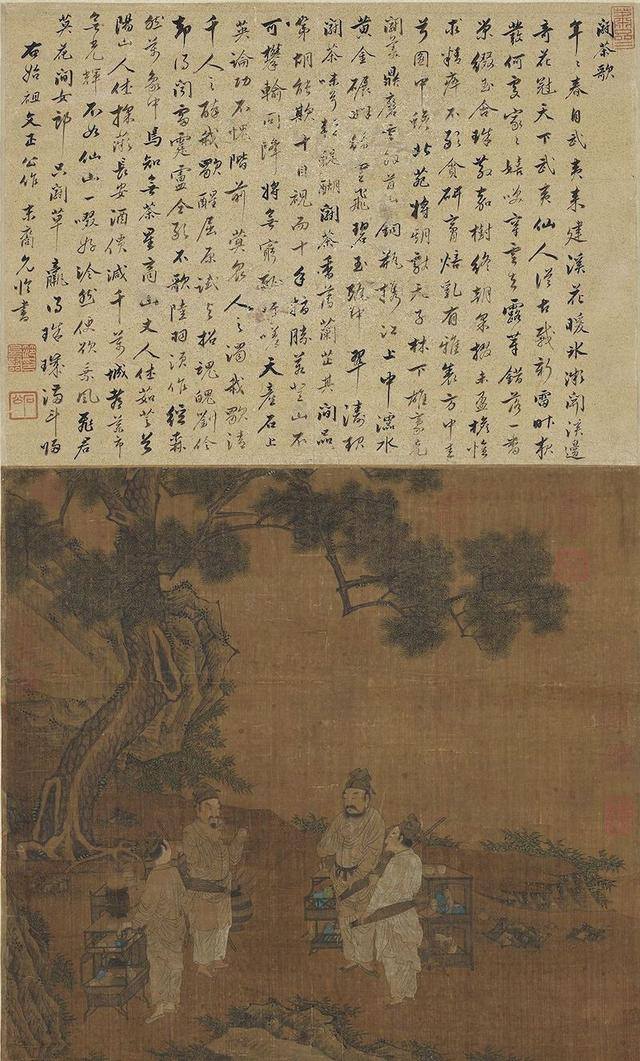 鬭茶歌
年〻春自武夷来建溪花暖氷微開溪邊
奇花冠天下武夷仙人從古栽新雷昨夜
發何處家〻嬉笑穿雲去露芽錯落一番
榮綴玉含珠散嘉樹終朝采掇未盈襜惟
求精粹不敢貪研膏焙乳有雅製方中圭
兮圓中蟾北苑將期獻天子林下雄豪先
鬭美鼎磨雲外首山銅瓶攜江上中濡水
黃金碾畔綠塵飛碧玉甌中翠濤起
鬭茶味兮輕醍醐鬭茶香兮薄蘭芷其間品
第胡能欺十目視而十手指勝若登山不
可攀輸同降將無窮恥吁嗟天產石上
英論功不愧階前蓂衆人之濁我歌清
千人之醉我歌醒屈原試與招魂魄劉伶
却得聞雷霆盧仝敢不歌陸羽須作經森
然萬象中焉知無茶星商山丈人休茹芝首
陽山人休採薇長安酒價減千萬城都藥市
無光輝不如仙山一啜好泠然便欲乘風飛君
莫花間女郎只鬭草贏得珠璣滿斗歸
右始祖文正公作 裔允臨書